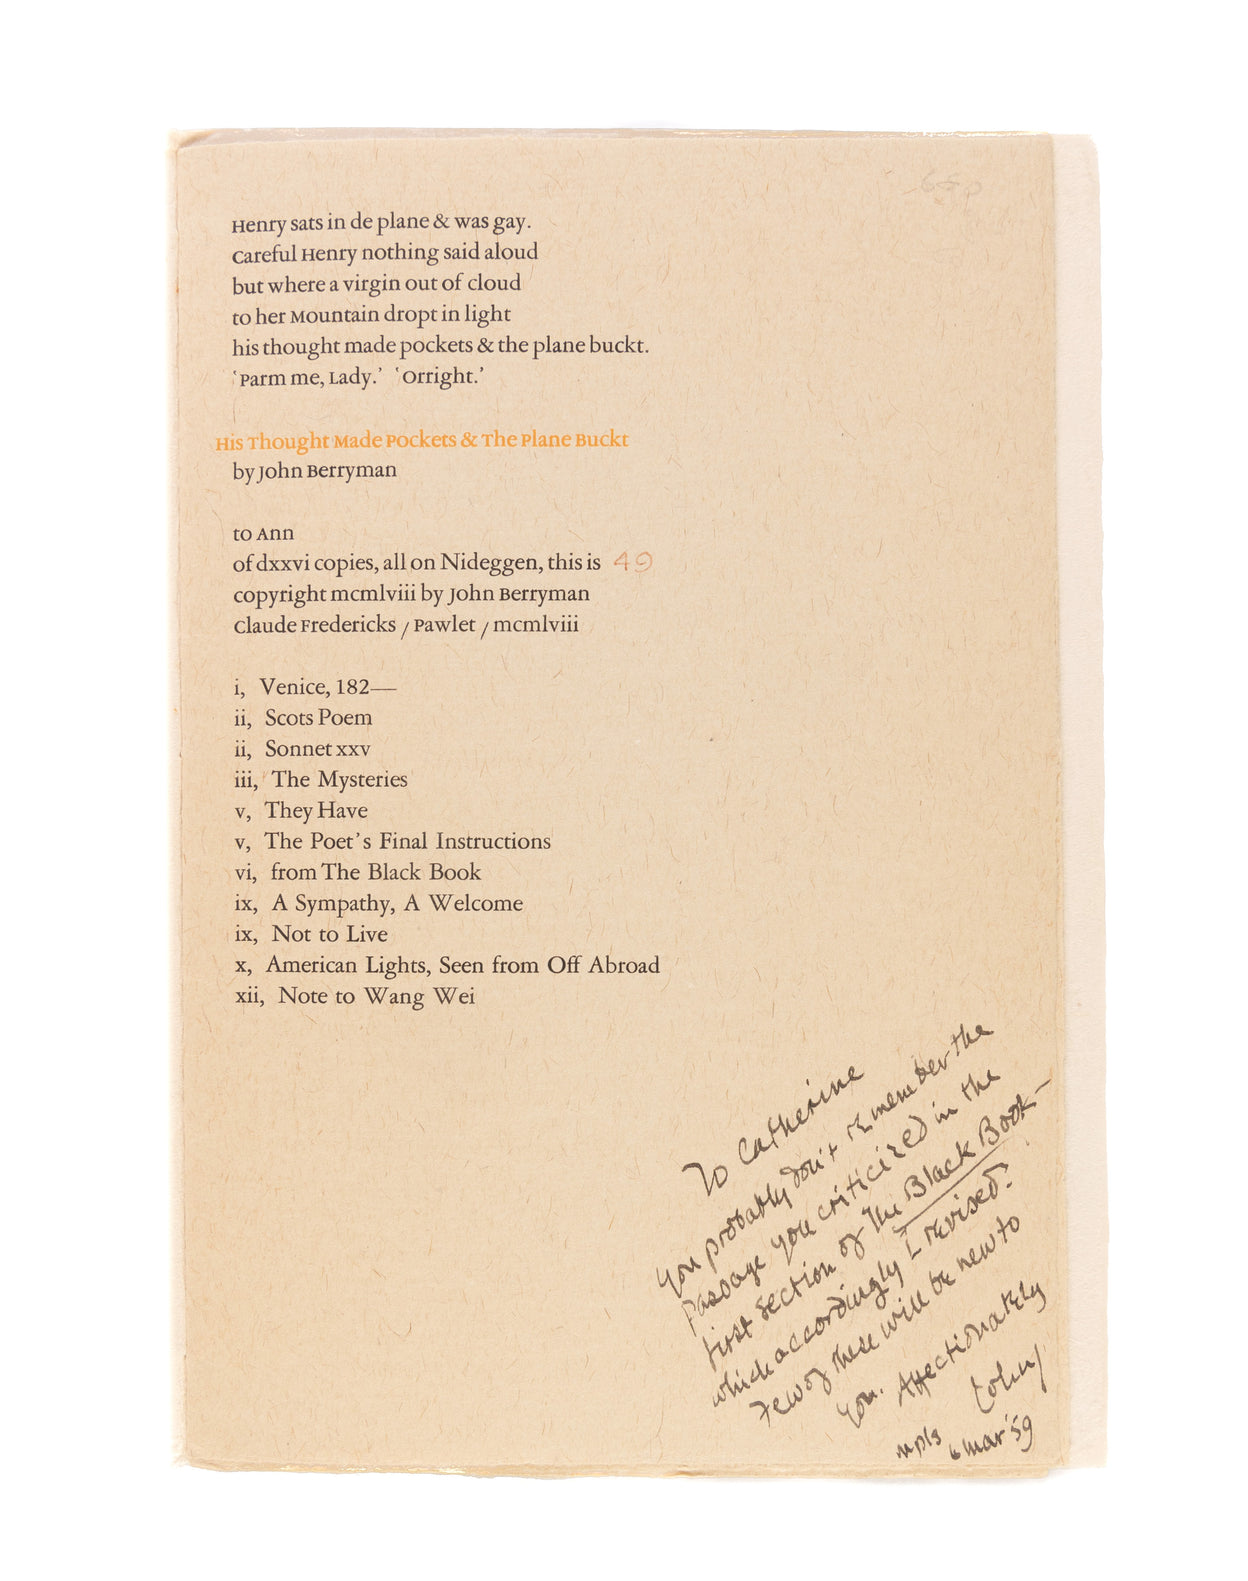 Henry sats in de plane & was gay.
Careful Henry nothing said aloud
but where a virgin out of cloud
to her Mountain dropt in light
his thought made pockets & the plane buckt.
‘Parm me, Lady.’ ‘Orright.’
His Thought Made Pockets & The Plane Buckt
by John Berryman
to Ann
of dxxvi copies, all on Nideggen, this is 49
copyright mcmlviii by John Berryman
Claude Fredericks / Pawlet / mcmlviii
i, Venice, 182—
ii, Scots Poem
ii, Sonnet xxv
iii, The Mysteries
v, They Have
v, The Poet’s Final Instructions
vi, from The Black Book
ix, A Sympathy, A Welcome
ix, Not to Live
x, American Lights, Seen from Off Abroad
xii, Note to Wang Wei
To Catherine
you probably don't remember the
passage you criticized in the
first section of The Black Book –
which accordingly I revised.
Few of these will be new to
you. Affectionately
John
mpls 6 Mar '59